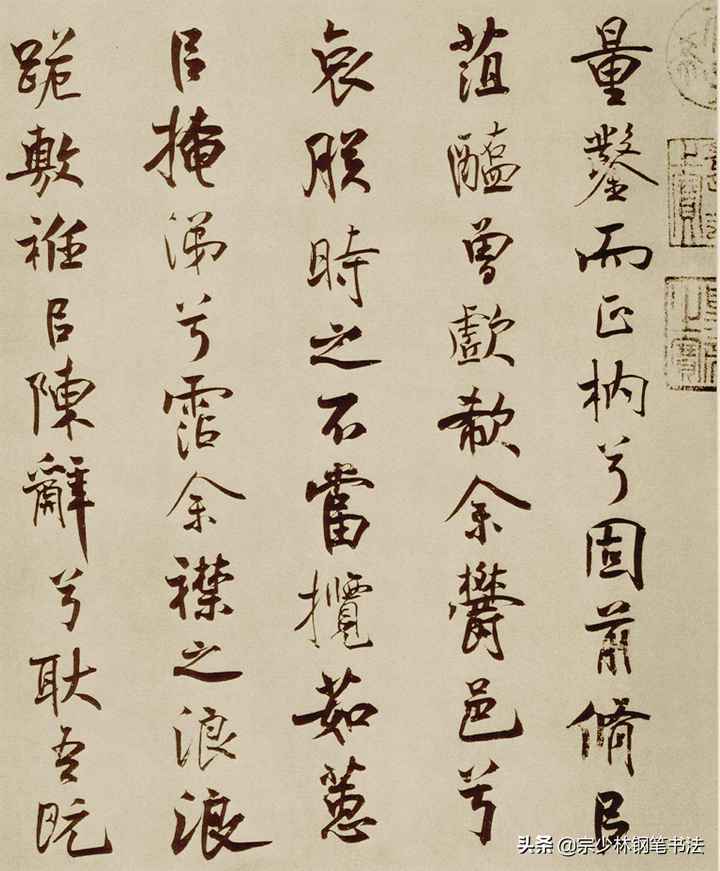 量鑿而正枘兮固前脩㠯
菹醢曾歔欷余鬱邑兮
哀朕時之不當攬茹蕙
㠯掩涕兮霑余襟之浪浪
跪敷衽㠯陳辭兮耿吾既
头条 @宗少林钢笔书法